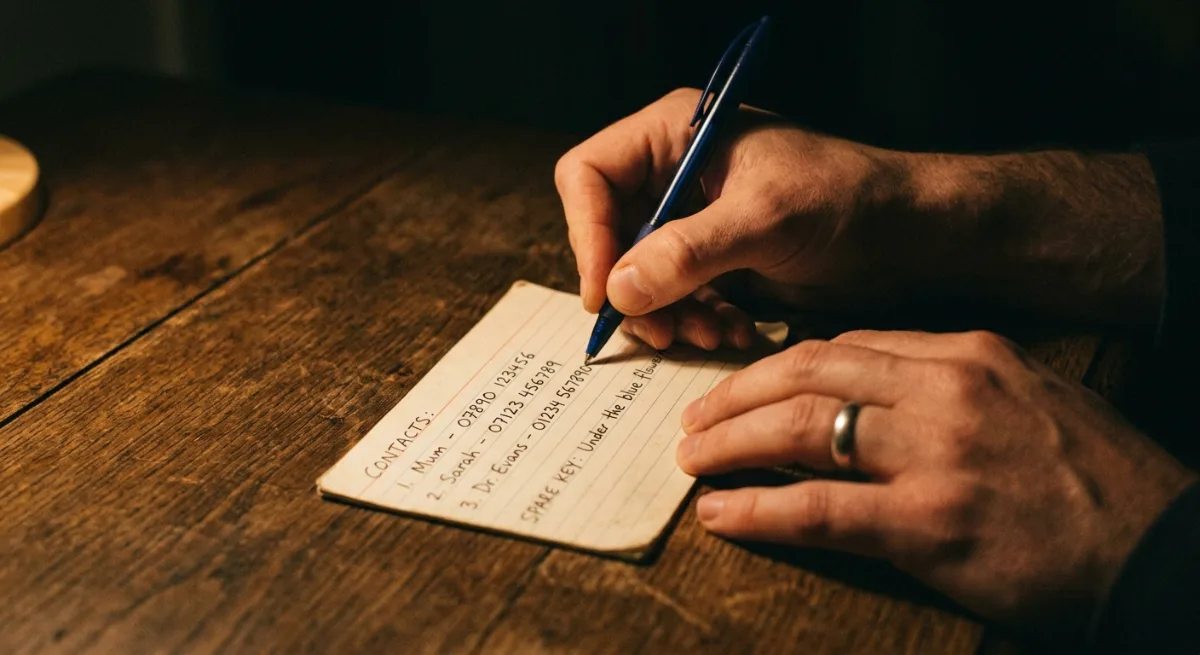 CONTACTS:
1. Mum - 07890 123456
2. Sarah - 07123 456789
3. Dr. Evans - 01234 567890
SPARE KEY: Under the blue flower